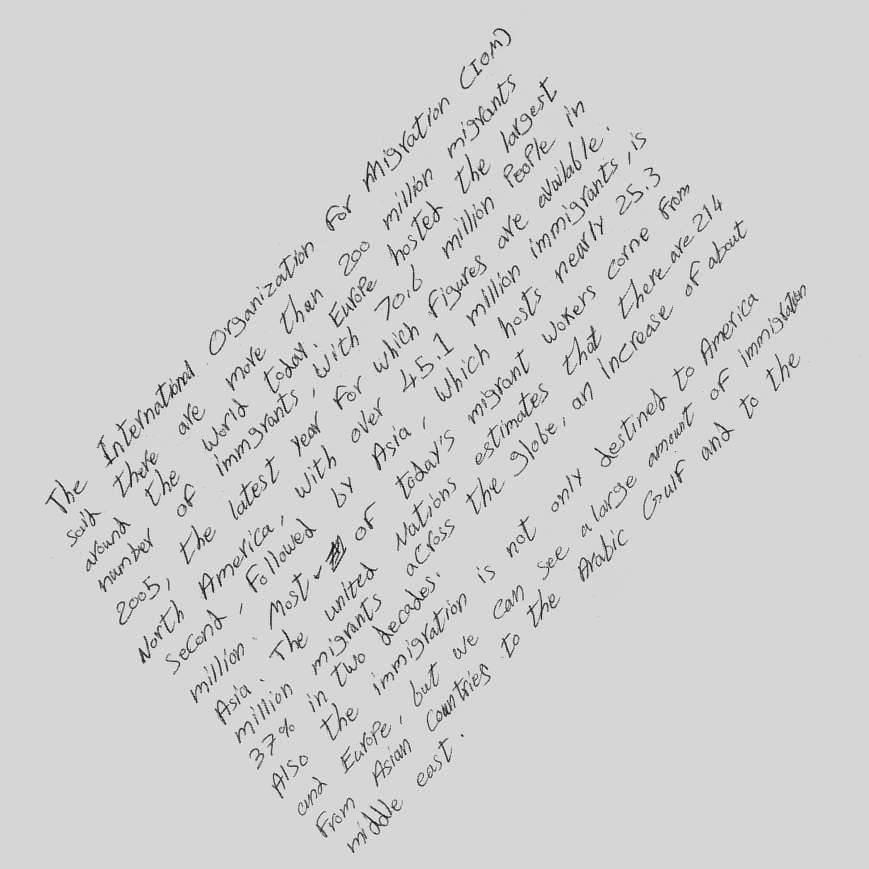 The International Organization For Migration (IOM)
said there are more than 200 million migrants
around the world today. Europe hosted the largest
number of immigrants, with 70,6 million People in
2005, the latest year For which Figures are available.
North America, with over 45.1 million immigrants, is
second, Followed by Asia, which hosts nearly 25.3
million. Most of today's migrant workers come From
Asia. The united Nations estimates that there are 214
million migrants across the globe, an Increase of about
37% in two decades.
Also the immigration is not only destined to America
and Europe, but we can see a large amount of immigration
From Asian Countries to the Arabic Gulf and to the
middle east.